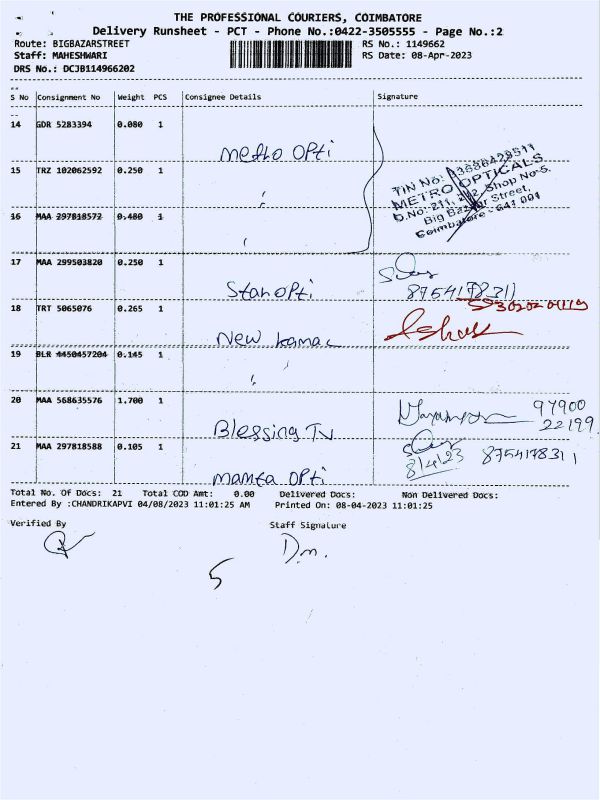 THE PROFESSIONAL COURIERS, COIMBATORE
Delivery Runsheet - PCT - Phone No.:0422-3505555 - Page No.:2
Route: BIGBAZARSTREET RS No.: 1149662
Staff: MAHESHWARI RS Date: 08-Apr-2023
DRS No.: DCJB114966202
S No Consignment No Weight PCS Consignee Details Signature
14 GDR 5283394 0.080 1
Metro OPti
15 TRZ 102062592 0.250 1
TIN No: 33886429511
METRO OPTICALS
D.No: 211, 212, Shop No-5.
Big Bazaar Street,
Coimbatore - 641 001
16 MAA 297818572 0.480 1
17 MAA 299503820 0.250 1
Star OPti
8754178311
18 TRT 5065076 0.265 1
New Kamal
19 BLR 4450457204 0.145 1
20 MAA 568635576 1.700 1
Blessing TV
97900
22199
21 MAA 297818588 0.105 1
Mamta OPti
8/4/23 8754178311
Total No. Of Docs: 21 Total COD Amt: 0.00 Delivered Docs: Non Delivered Docs:
Entered By :CHANDRIKAPVI 04/08/2023 11:01:25 AM Printed On: 08-04-2023 11:01:25
Verified By Staff Signature
D.m.
5